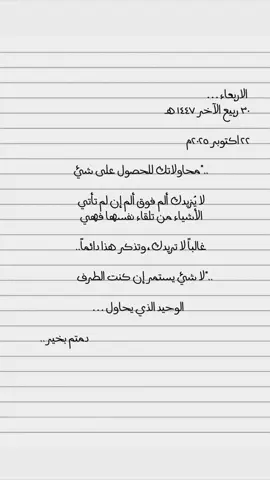 الاربعاء...
٣٠ ربيع الآخر ١٤٤٧ هـ
٢٢ اكتوبر ٢٠٢٥م
.."محاولاتك للحصول على شئ
لا يزيدك ألم فوق ألم إن لم تأتي
الأشياء من تلقاء نفسها فهي
غالباً لا تريدك ، وتذكر هذا دائماً..
.."لا شئ يستمر إن كنت الطرف
الوحيد الذي يحاول ...
دمتم بخير..